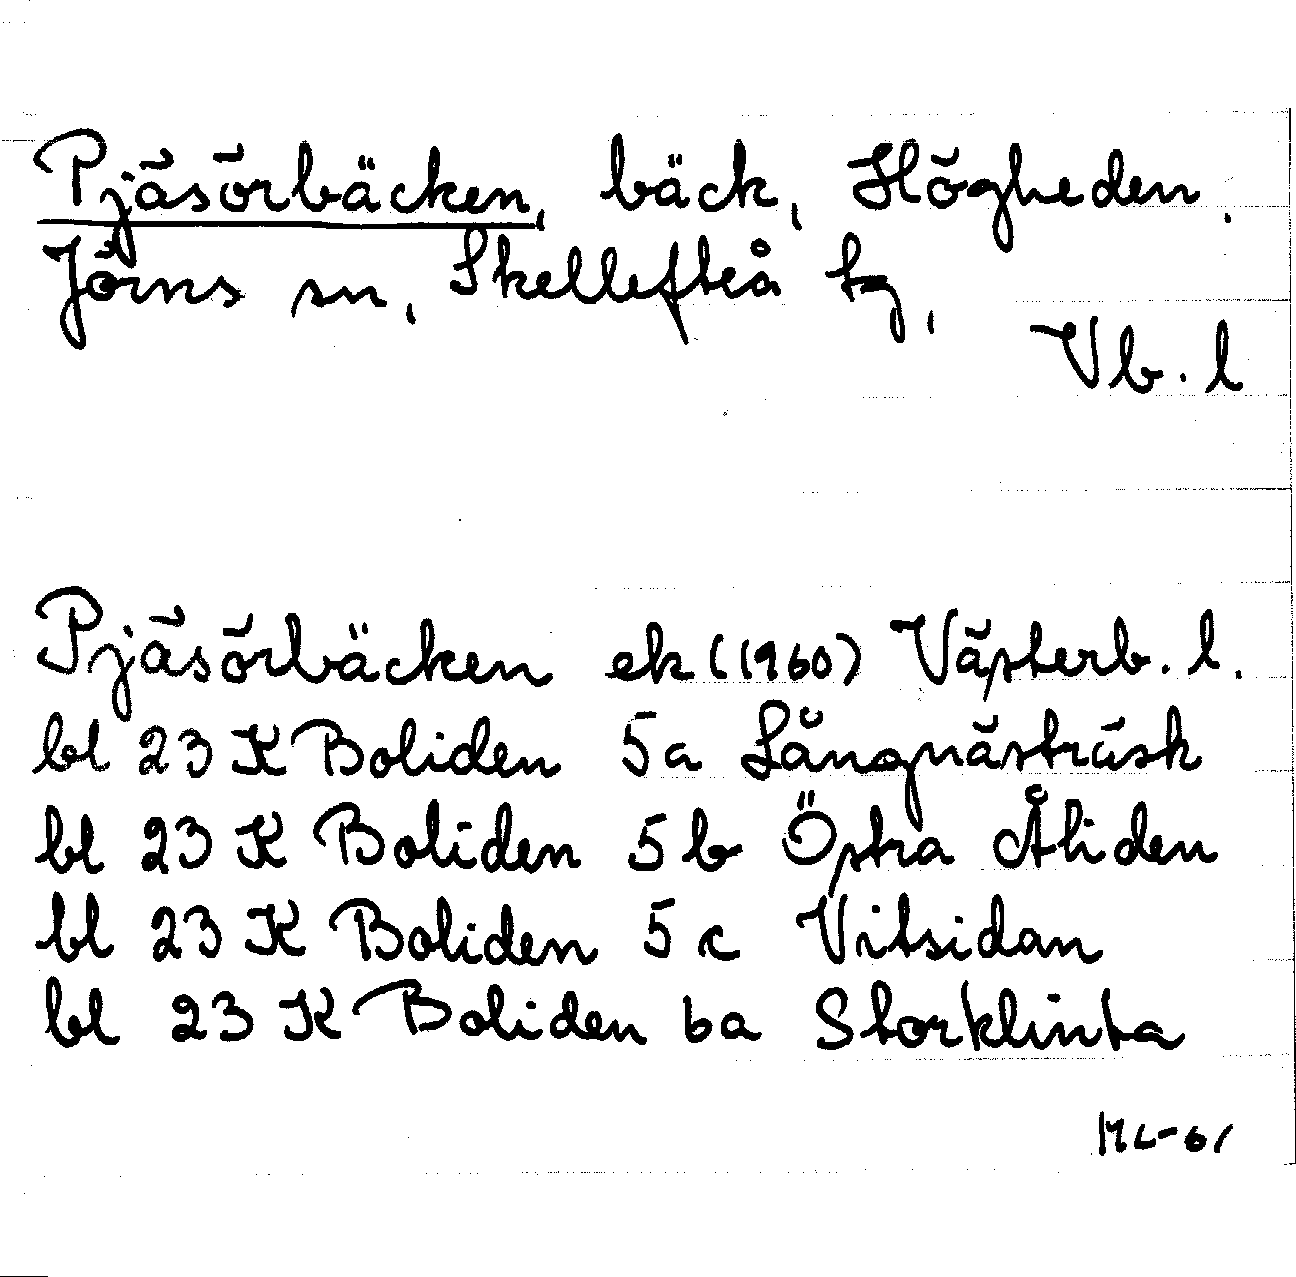 Pjäsörbäcken, bäck, Högheden.
Jörns sn, Skellefteå tg,
Vb. l
Pjäsörbäcken ek (1960) Västerb. l.
bl 23 K Boliden 5a Långnästräsk
bl 23 K Boliden 5b Östra Åliden
bl 23 K Boliden 5c Vitsidan
bl 23 K Boliden 6a Storklinta
ML-61